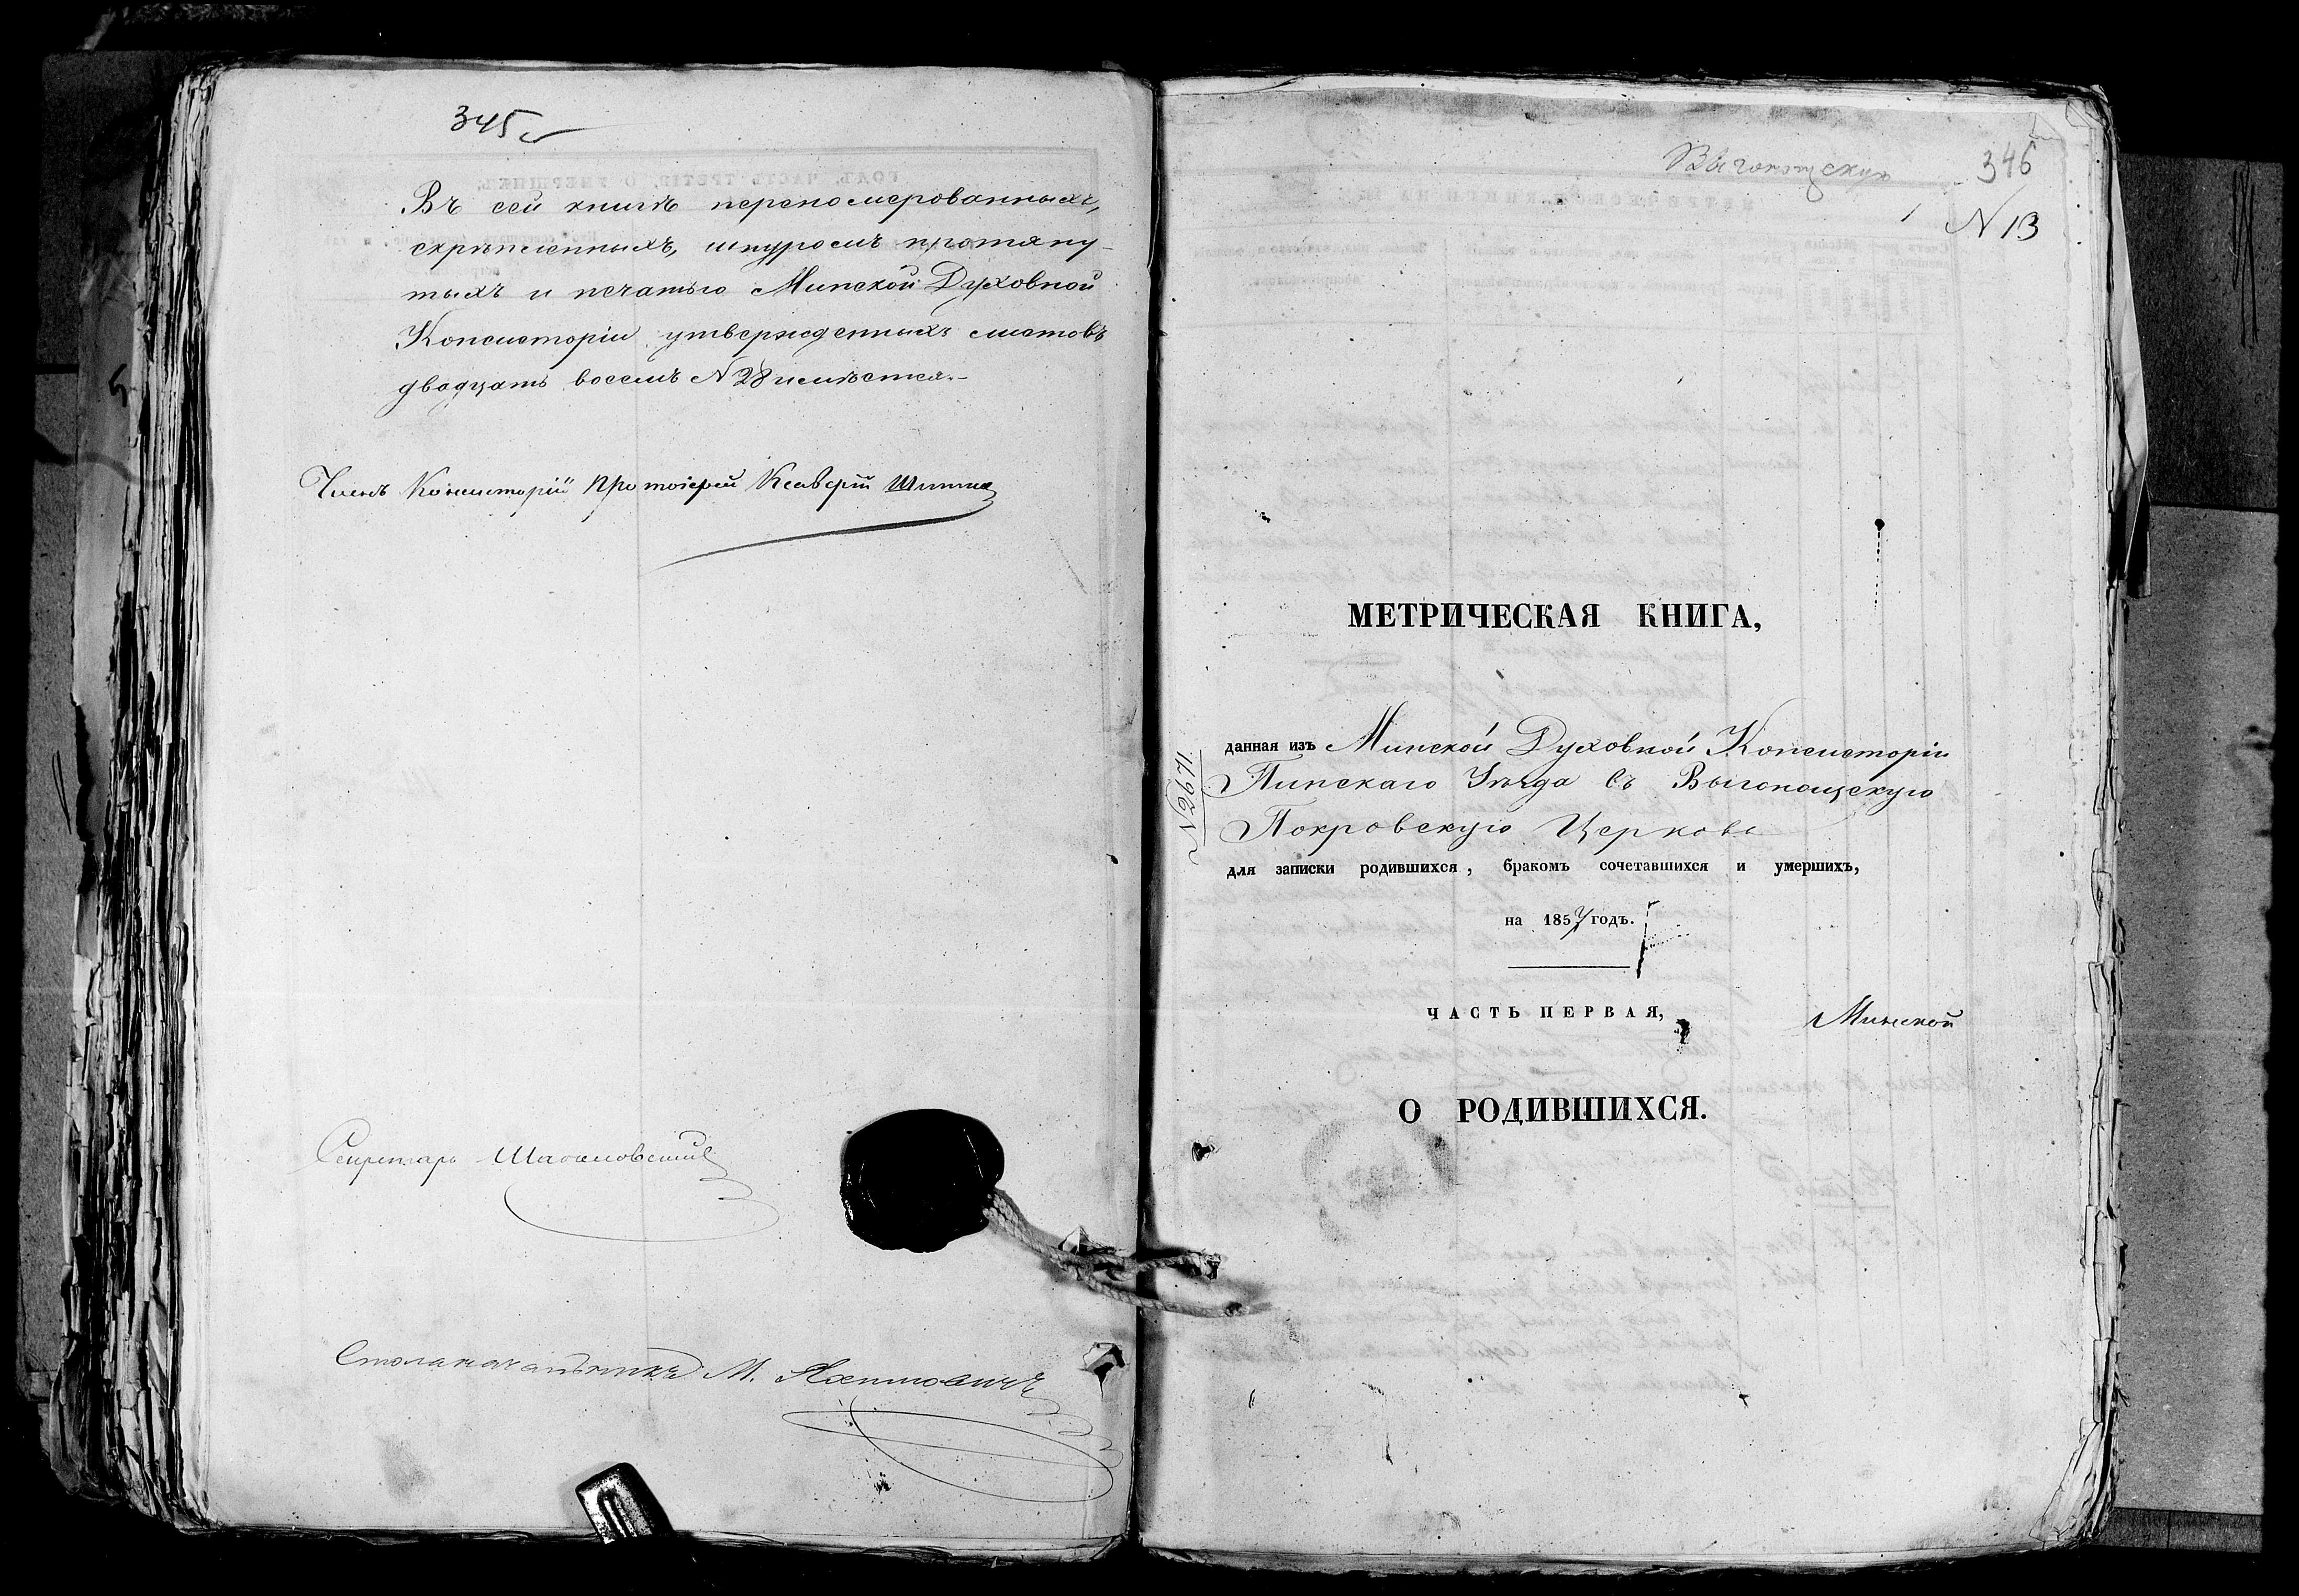 345
Въ сей книгѣ перенумерованныхъ,
скрѣпленныхъ, шнуромъ протяну-
тыхъ и печатью Минской Духовной
Консисторіи утвержденныхъ листовъ
двадцать восемь N 28 имѣется.-
Членъ Консисторіи Протоіерей
Секретарь
Столоначальникъ М.
346
N 13
МЕТРИЧЕСКАЯ КНИГА,
данная изъ Минской Духовной Консисторіи
Пинскаго Уѣзда въ Выгонощскую
Покровскую Церковь
N 2671
для записки родившихся, бракомъ сочетавшихся и умершихъ,
на 1857 годъ.
ЧАСТЬ ПЕРВАЯ,
Минской
О РОДИВШИХСЯ.